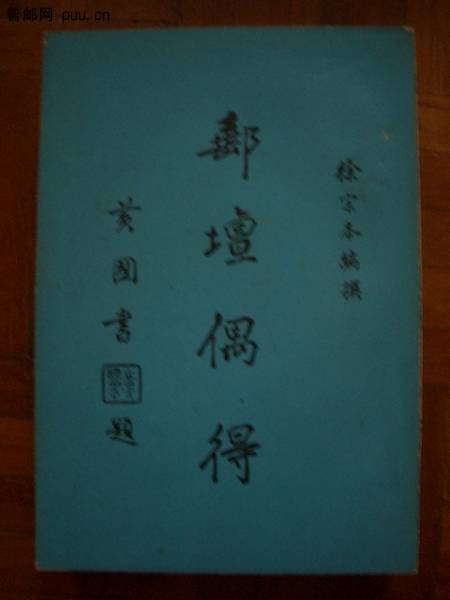 普邮网 puu.cn
徐宗本編撰
郵壇偶得
黃國書
題